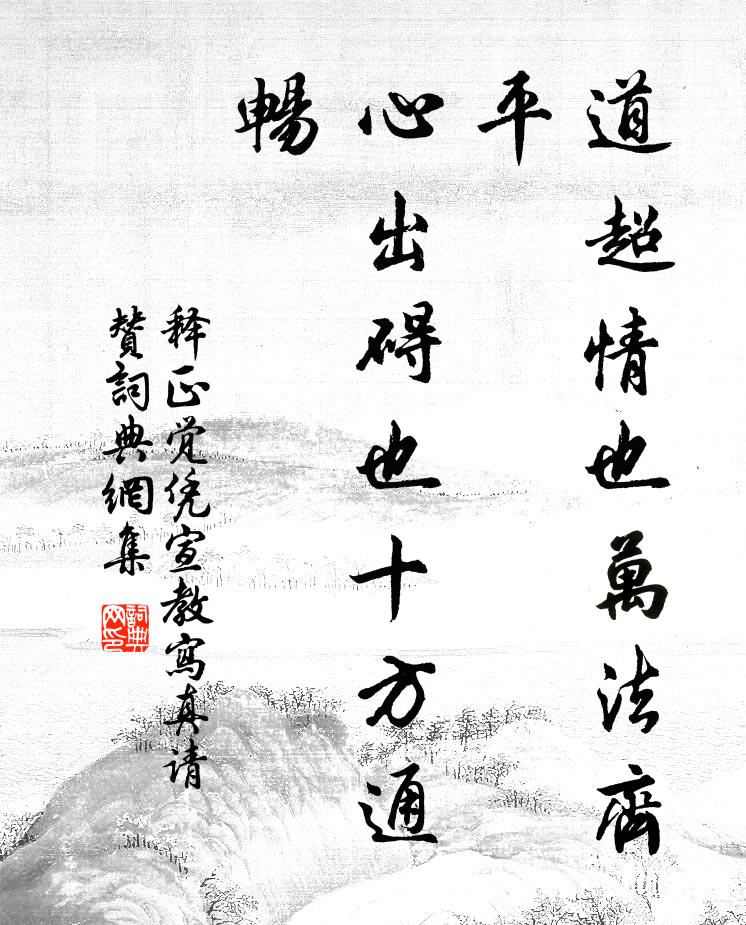 道超情也萬法齊
平
心出碍也十方通
暢
释正觉凭宣教寫真请
赞詞典網集
詞典网印